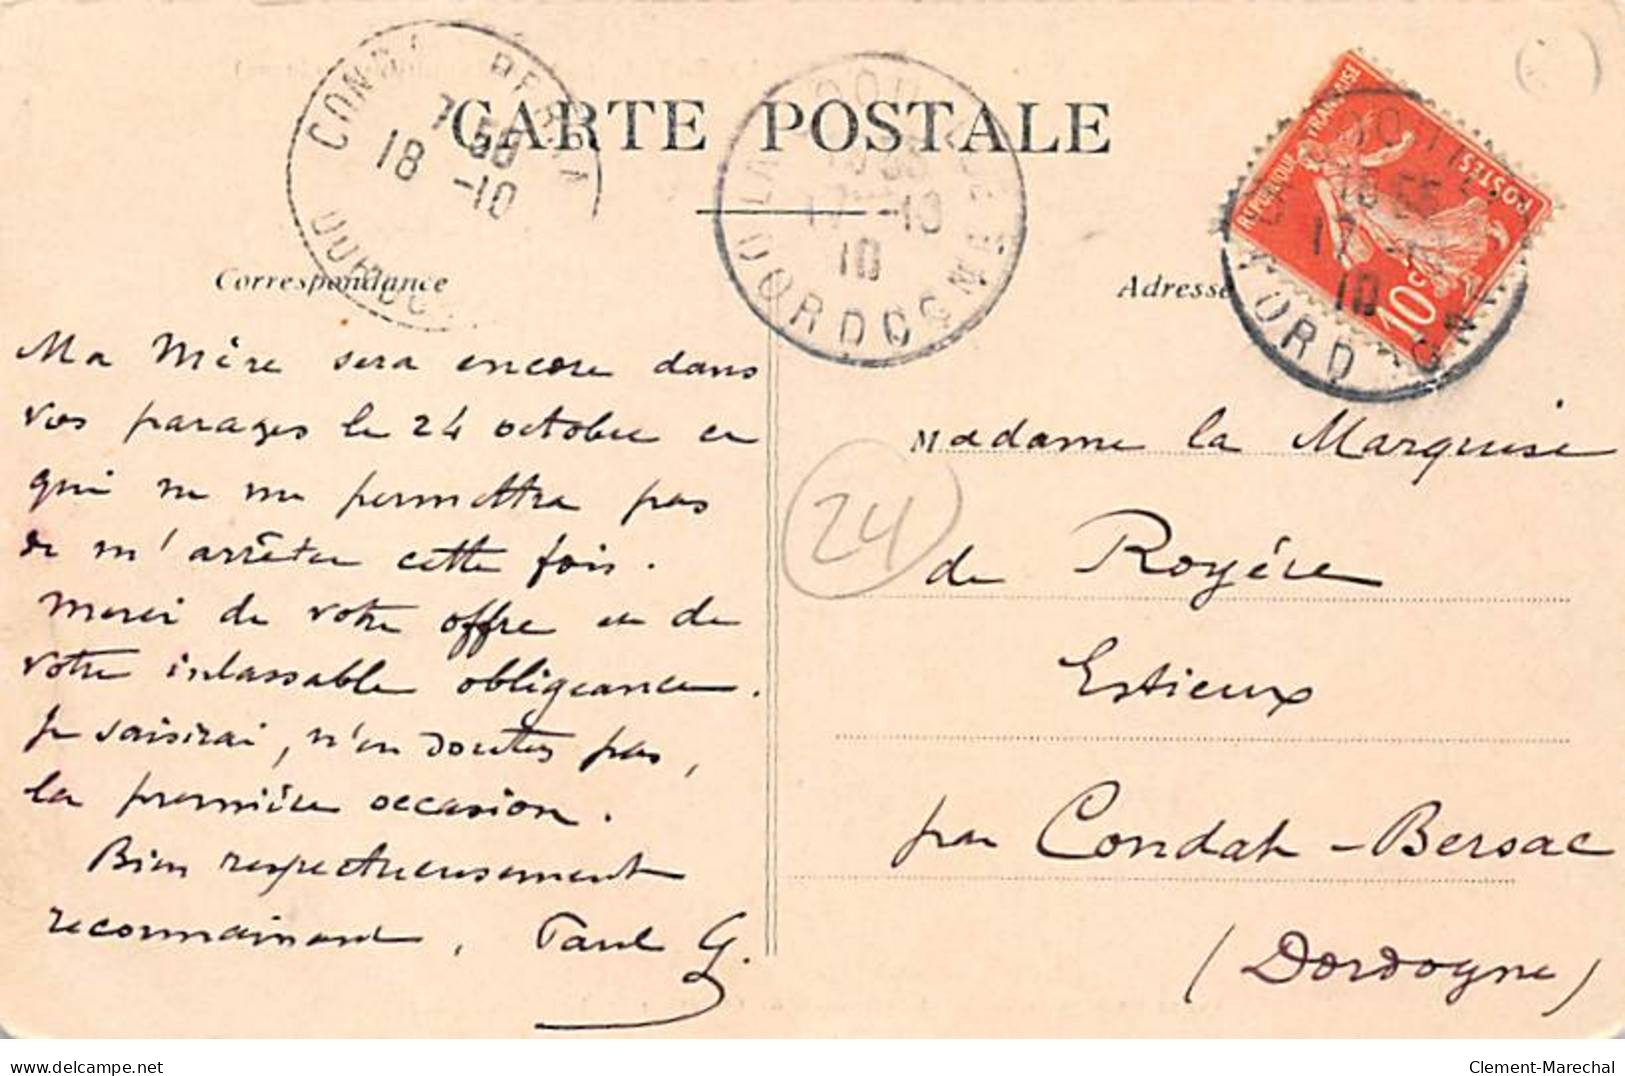 CARTE POSTALE
Correspondance
Adresse
RÉPUBLIQUE FRANÇAISE
POSTES
10c
18 -10
17 -10
10
DORDOGNE
17
10
Ma Mère sera encore dans
vos parages le 24 octobre ce
qui ne me permettra pas
de m'arrêter cette fois.
Merci de votre offre et de
votre inlassable obligeance.
Je saisirai, n'en doutez pas,
la première occasion.
Bien respectueusement
reconnaissant, Paul G.
24
Madame la Marquise
de Royère
Estieux
par Condat-Bersac
(Dordogne)
delcampe.net
Clement-Marechal